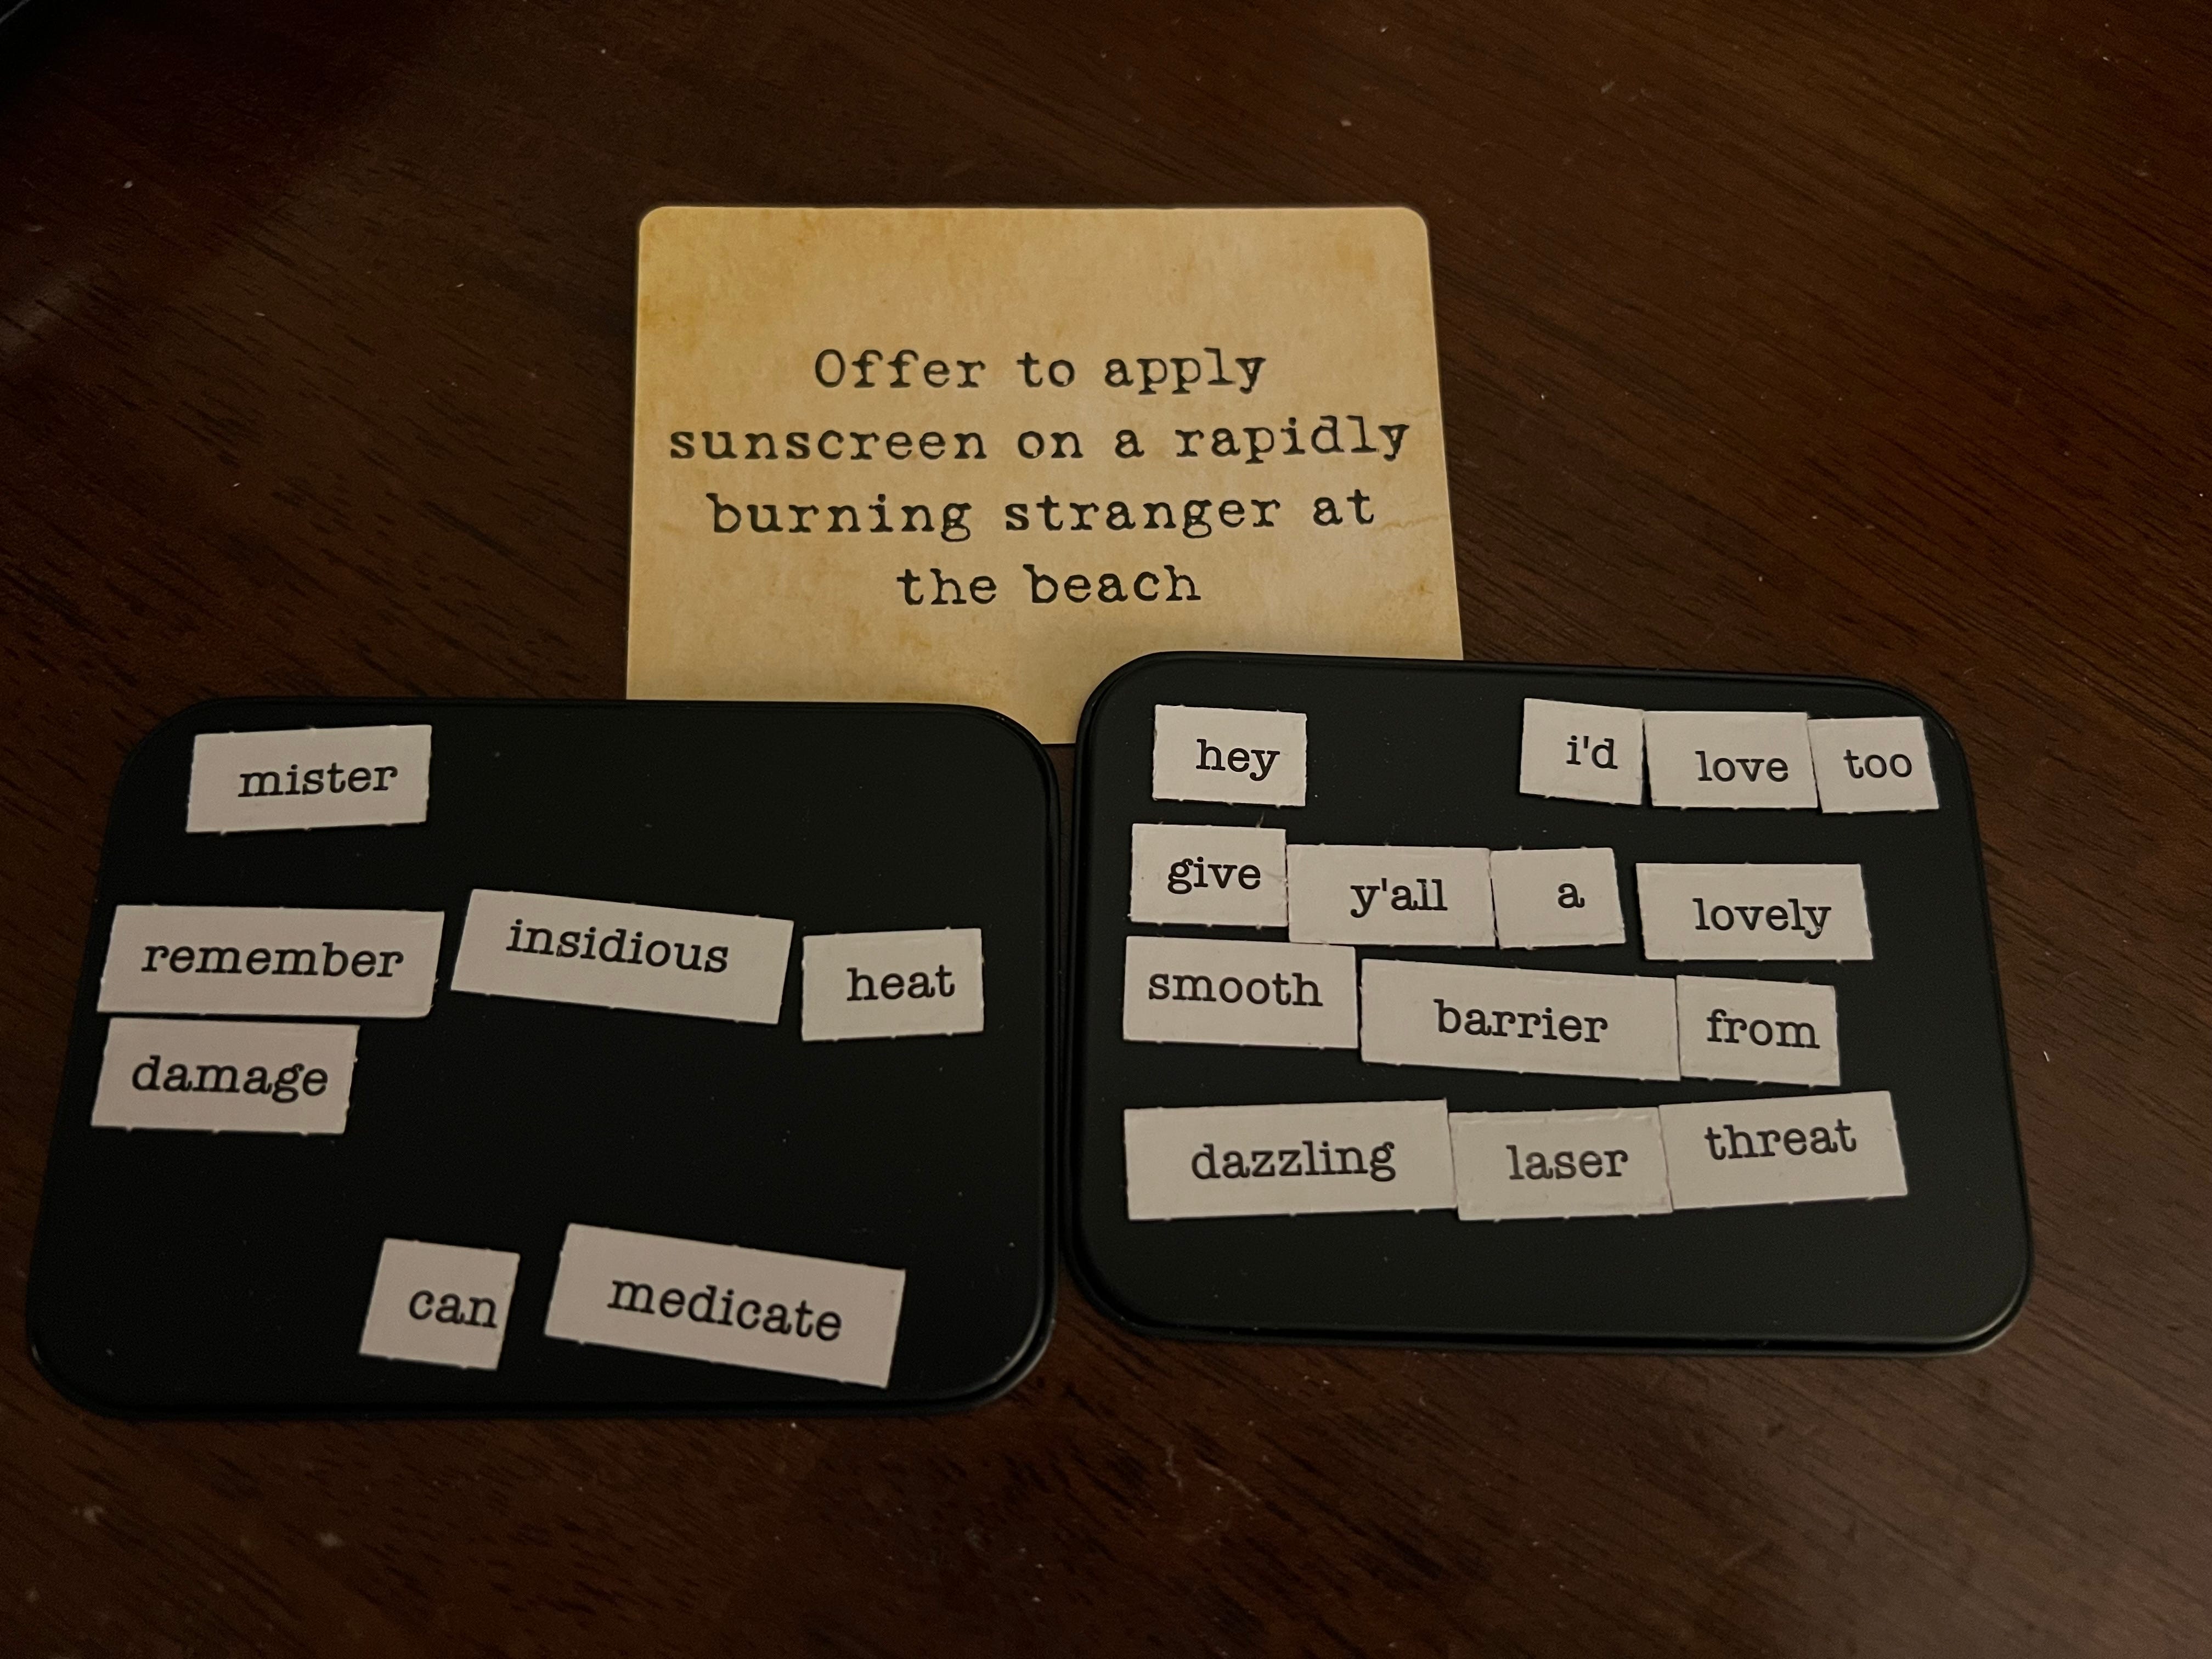 Offer to apply
sunscreen on a rapidly
burning stranger at
the beach
mister
remember insidious heat
damage
can medicate
hey i'd love too
give y'all a lovely
smooth barrier from
dazzling laser threat